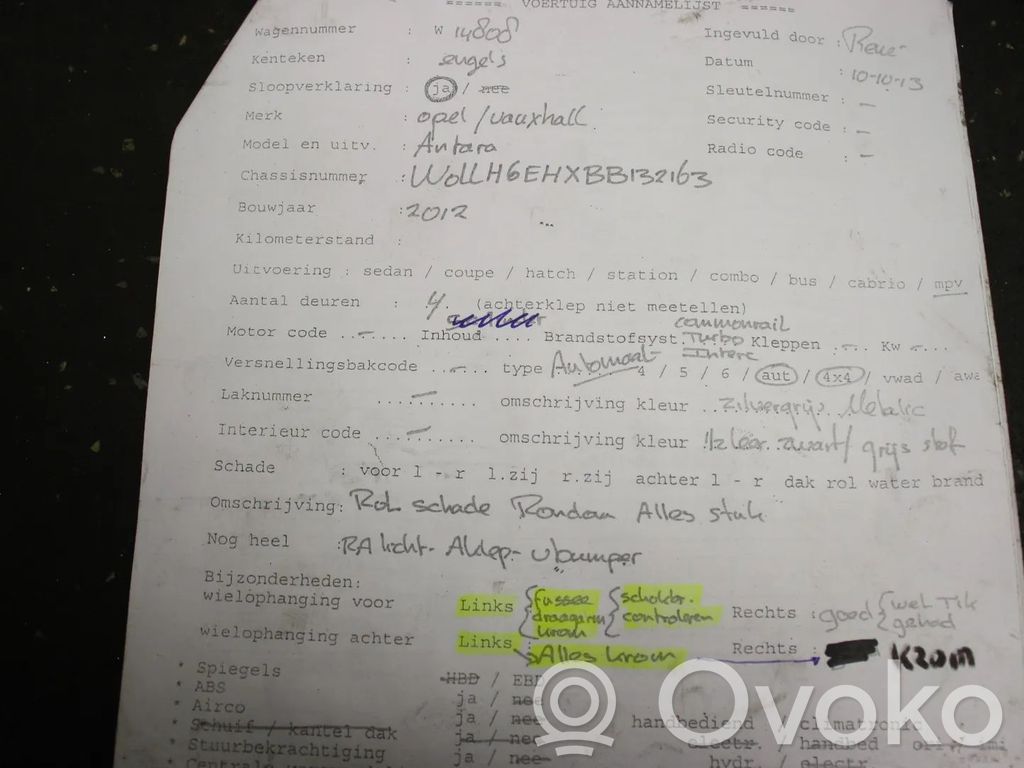 ====== VOERTUIG AANNAMELIJST ======
Wagennummer : W 14808 Ingevuld door : René
Kenteken : engels Datum : 10-10-13
Sloopverklaring : ja / nee Sleutelnummer : -
Merk : opel/vauxhall. Security code : -
Model en uitv. : Antara Radio code : -
Chassisnummer : WOLLH6EHXBB132163
Bouwjaar : 2012
Kilometerstand :
Uitvoering : sedan / coupe / hatch / station / combo / bus / cabrio / mpv
Aantal deuren : 4. (achterklep niet meetellen)
commonrail
Motor code ..-.... Inhoud .... Brandstofsyst. Turbo Kleppen .-. Kw -...
Interc
Versnellingsbakcode ..-.. type Automaat 4 / 5 / 6 / aut / 4x4 / vwad / awa
Laknummer ...-...... omschrijving kleur ..zilvergrijs. Metalic
Interieur code ...-...... omschrijving kleur 1/2 leer. zwart/ grijs stof
Schade : voor l - r l.zij r.zij achter l - r dak rol water brand
Omschrijving: Rol schade Rondom Alles stuk
Nog heel : RA licht- Aklep- vbumper
Bijzonderheden:
wielophanging voor Links { fusee draagarm krom { schokbr. controleren Rechts : goed { wel Tik gehad
wielophanging achter Links : Alles krom Rechts : KROM
* Spiegels HBD / EBD
* ABS ja / nee
* Airco ja / nee handbediend / climatronic
* Schuif / kantel dak ja / nee electr. / handbed
* Stuurbekrachtiging ja / nee hydr. / electr.
Ovoko